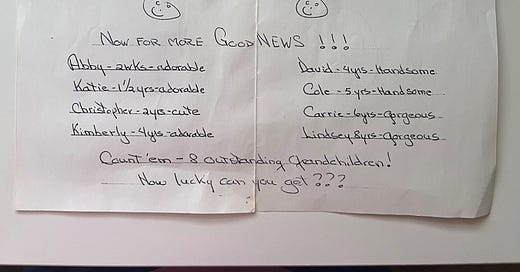 Now for more Good News !!!
Abby - 2wks - adorable
Katie - 1½ yrs - adorable
Christopher - 2yrs - cute
Kimberly - 4yrs - adorable
David - 4yrs - Handsome
Cole - 5 yrs - Handsome
Carrie - 6yrs - Gorgeous
Lindsey 8yrs - Gorgeous
Count 'em - 8 outstanding Grandchildren!
How lucky can you get ???